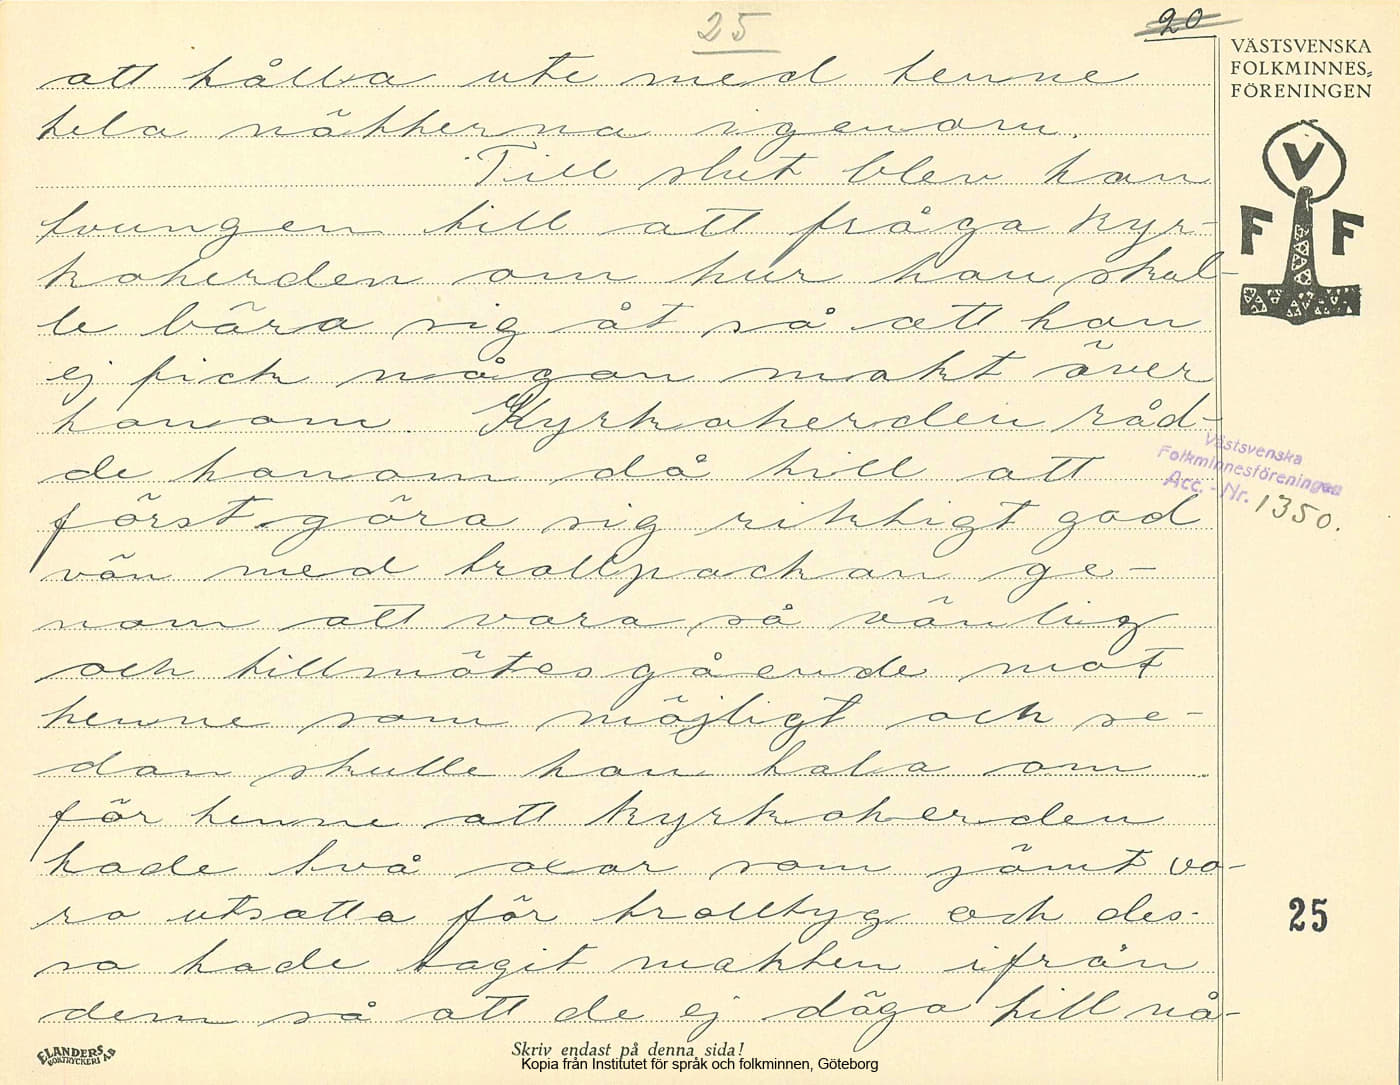 25
20
VÄSTSVENSKA
FOLKMINNES-
FÖRENINGEN
V
F F
att hålla ute med henne
hela nätterna igenom.
Till slut blev han
tvungen till att fråga kyr-
koherden om hur han skul-
le bära sig åt så att hon
ej fick någon makt över
honom. Kyrkoherden råd-
de honom då till att
först göra sig riktigt god
vän med trollpackan ge-
nom att vara så vänlig
och tillmötesgående mot
henne som möjligt och se-
dan skulle han tala om
för henne att kyrkoherden
hade två oxar som jämt va-
ra utsatta för trolltyg och des-
sa hade tagit makten ifrån
dem så att de ej döga till nå-
Västsvenska
Folkminnesföreningen
Acc. - Nr. 1350.
25
ELANDERS
BOKTRYCKERI AB
Skriv endast på denna sida!
Kopia från Institutet för språk och folkminnen, Göteborg